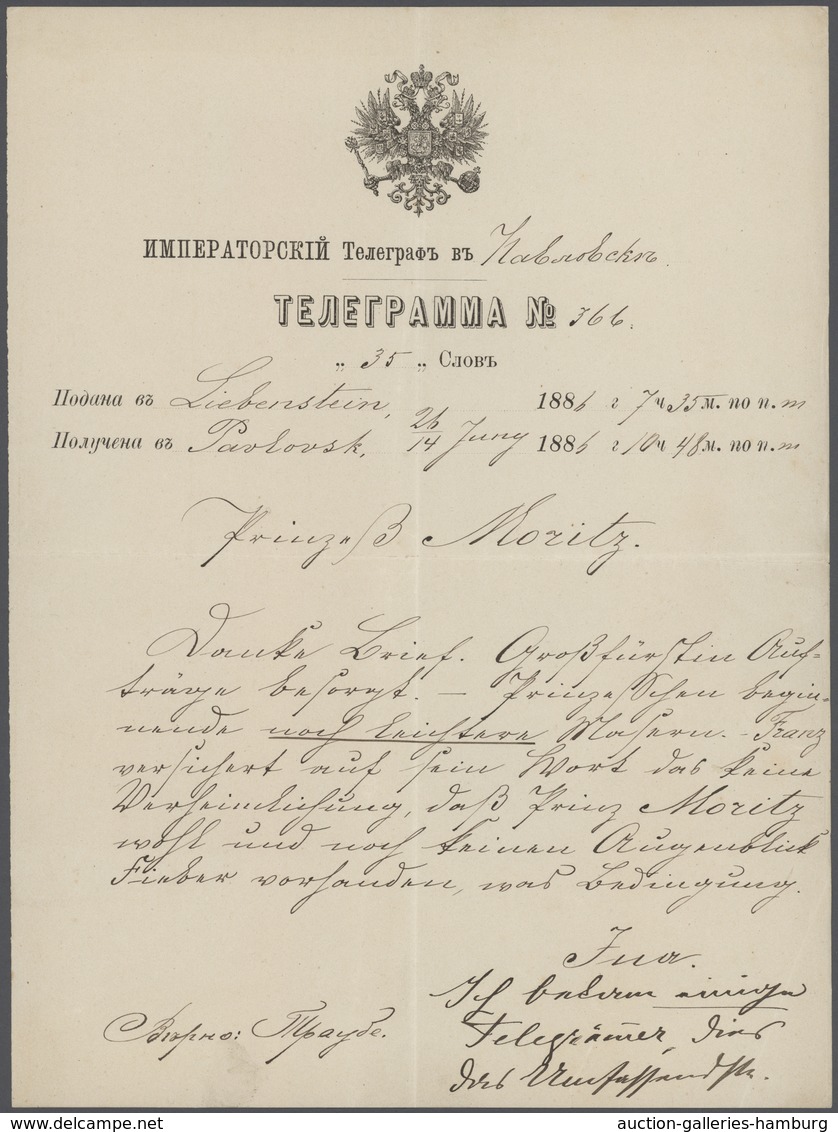 ИМПЕРАТОРСКІЙ Телеграфъ въ Павловскъ.
ТЕЛЕГРАММА № 366.
„ 35 „ Словъ
Подана въ Liebenstein, 1886 г 7 ч 35 м. по п. m
Получена въ Pavlovsk, 26/14 Juny 1886 г 10 ч 48 м. по п. m
Prinzeß Moritz.
Danke Brief. Großfürstin Auf-
träge besorgt. — Prinzesschen begin-
nende noch leichtere Masern. - Franz
versichert auf sein Wort das keine
Verheimlichung, daß Prinz Moritz
wohl und noch keinen Augenblick
Fieber vorhanden, was Bedingung.
Ina.
Ich bekam einige
Вѣрно: Траубе. Telegramme, dies
das Umfassendste.
auction-galleries-hamburg